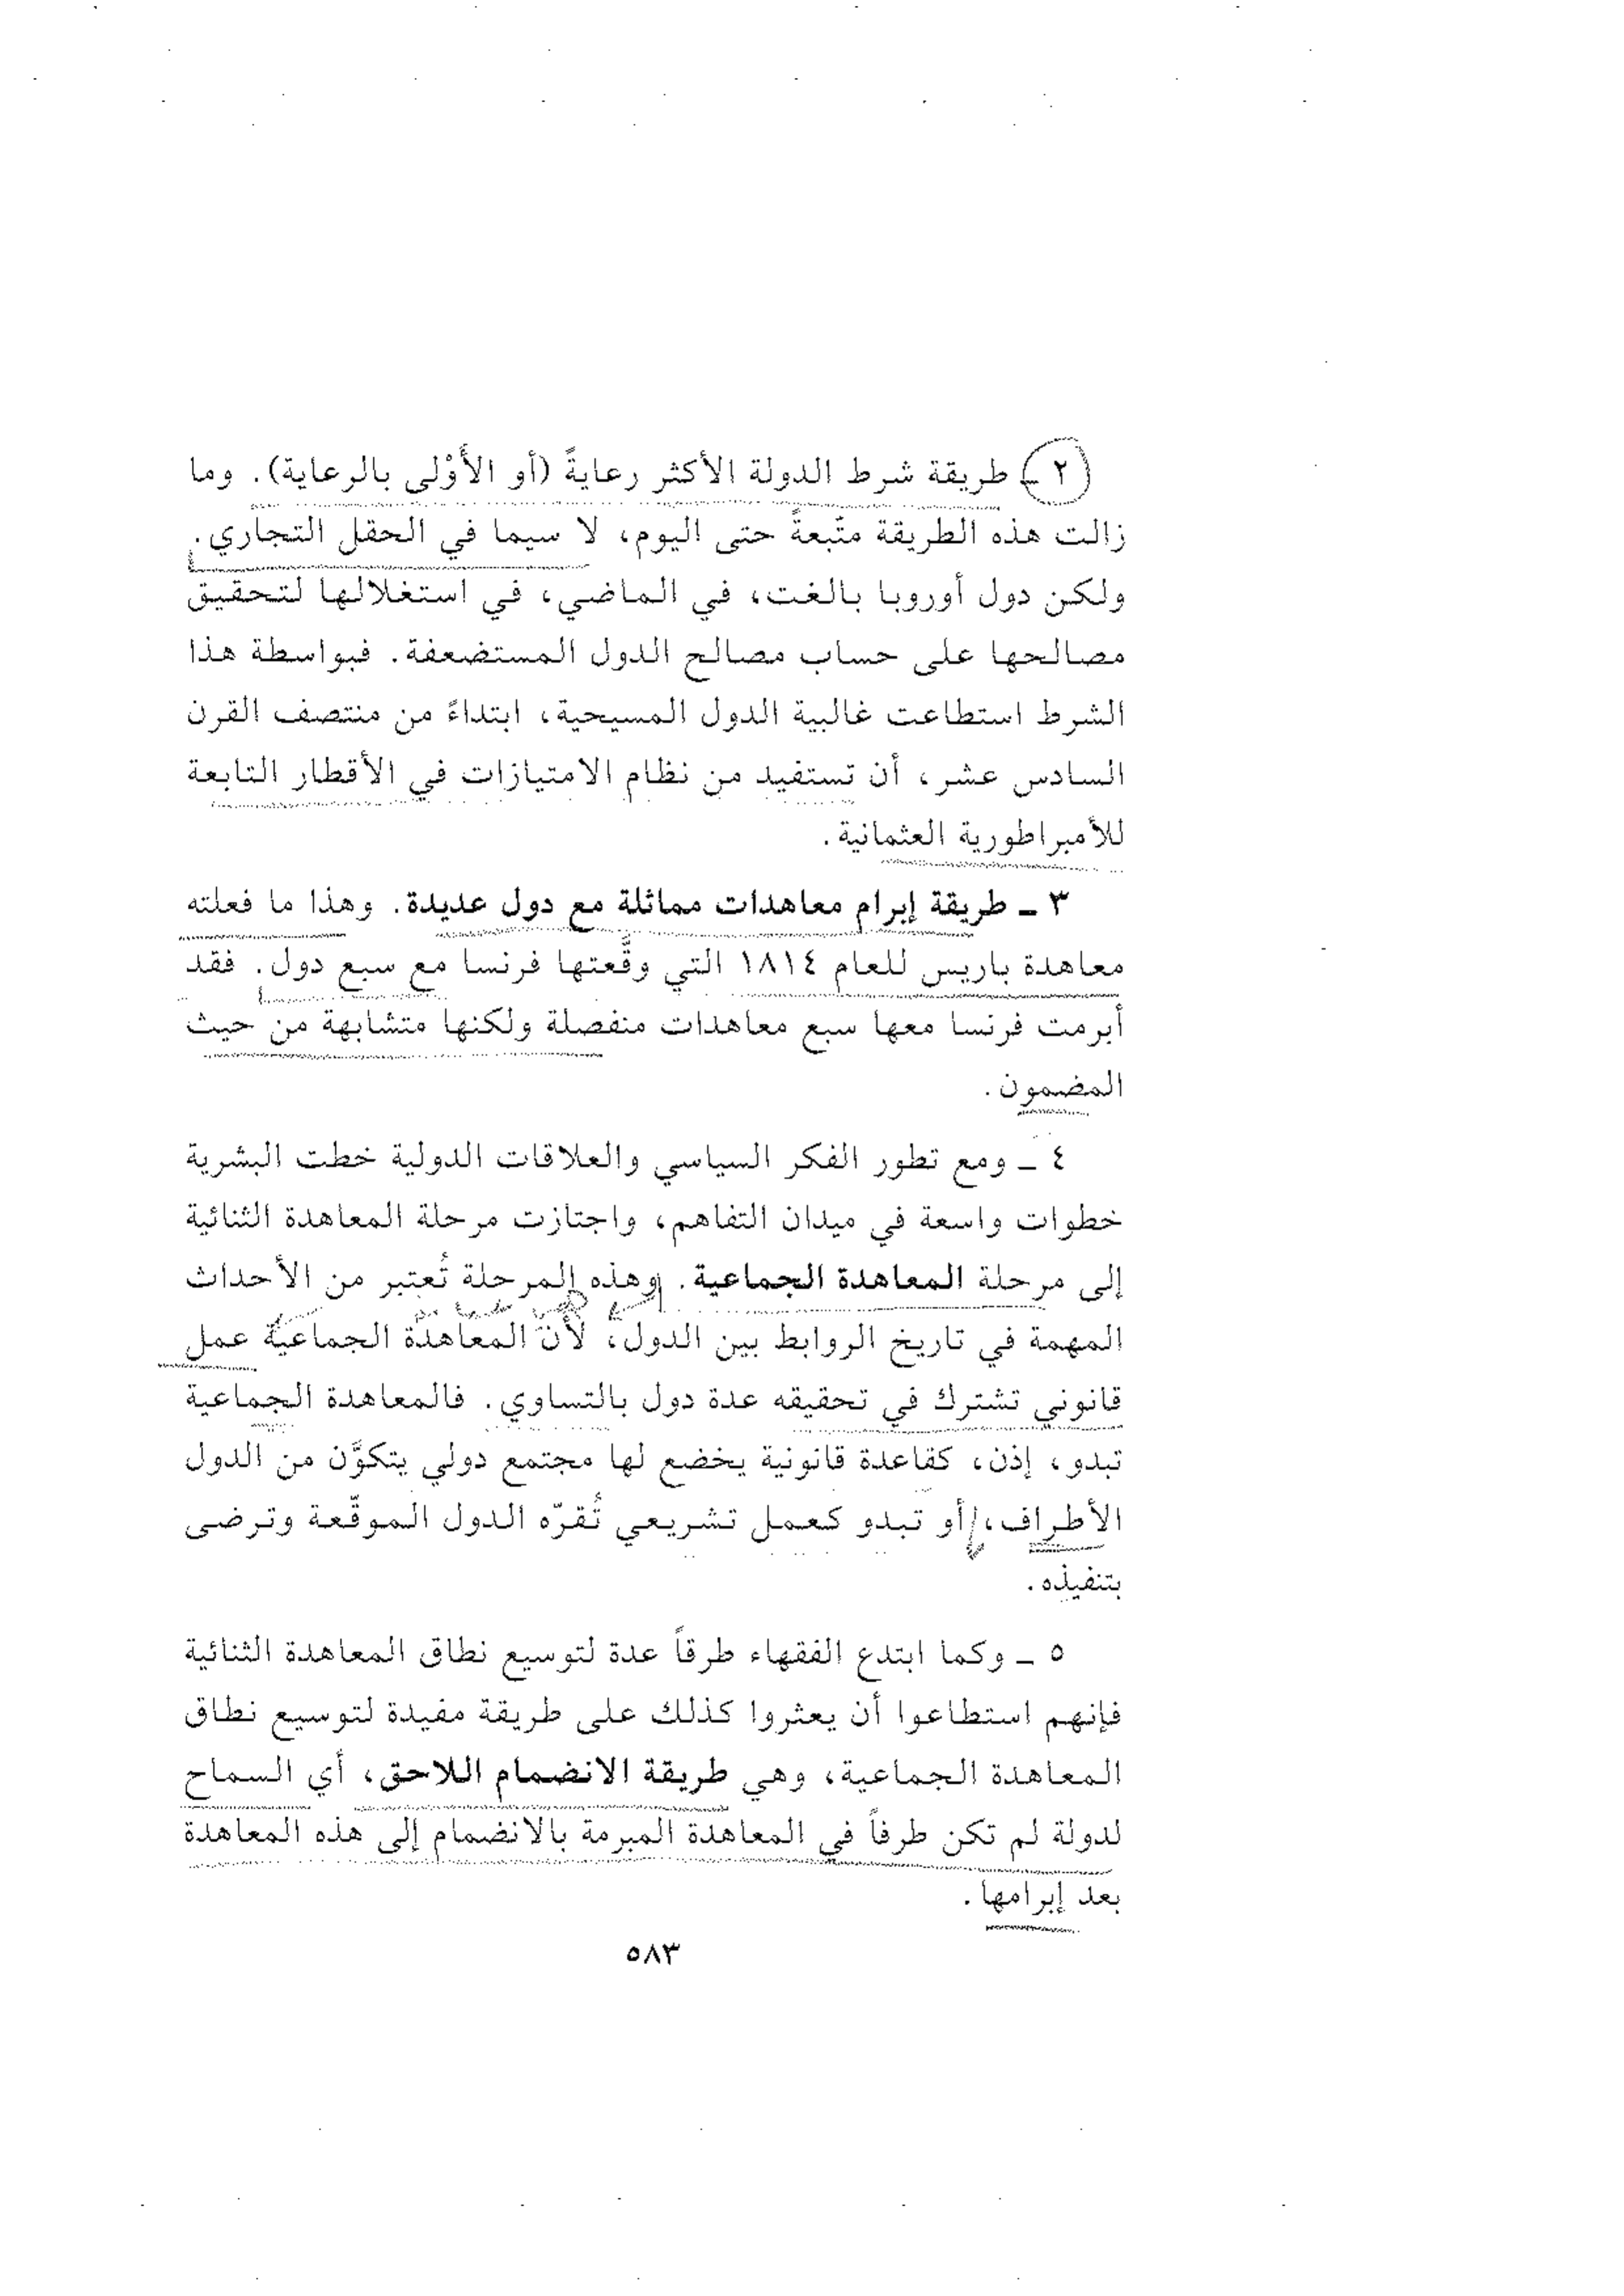 ٢ ـ طريقة شرط الدولة الأكثر رعايةً (أو الأَوْلى بالرعاية). وما
زالت هذه الطريقة متّبعةً حتى اليوم، لا سيما في الحقل التجاري.
ولكن دول أوروبا بالغت، في الماضي، في استغلالها لتحقيق
مصالحها على حساب مصالح الدول المستضعفة. فبواسطة هذا
الشرط استطاعت غالبية الدول المسيحية، ابتداءً من منتصف القرن
السادس عشر، أن تستفيد من نظام الامتيازات في الأقطار التابعة
للأمبراطورية العثمانية.
٣ ـ طريقة إبرام معاهدات مماثلة مع دول عديدة. وهذا ما فعلته
معاهدة باريس للعام ١٨١٤ التي وقَّعتها فرنسا مع سبع دول. فقد
أبرمت فرنسا معها سبع معاهدات منفصلة ولكنها متشابهة من حيث
المضمون.
٤ ـ ومع تطور الفكر السياسي والعلاقات الدولية خطت البشرية
خطوات واسعة في ميدان التفاهم، واجتازت مرحلة المعاهدة الثنائية
إلى مرحلة المعاهدة الجماعية. وهذه المرحلة تُعتبر من الأحداث
المهمة في تاريخ الروابط بين الدول، لأن المعاهدة الجماعية عمل
قانوني تشترك في تحقيقه عدة دول بالتساوي. فالمعاهدة الجماعية
تبدو، إذن، كقاعدة قانونية يخضع لها مجتمع دولي يتكوَّن من الدول
الأطراف، أو تبدو كعمل تشريعي تُقرّه الدول الموقّعة وترضى
بتنفيذه.
٥ ـ وكما ابتدع الفقهاء طرقاً عدة لتوسيع نطاق المعاهدة الثنائية
فإنهم استطاعوا أن يعثروا كذلك على طريقة مفيدة لتوسيع نطاق
المعاهدة الجماعية، وهي طريقة الانضمام اللاحق، أي السماح
لدولة لم تكن طرفاً في المعاهدة المبرمة بالانضمام إلى هذه المعاهدة
بعد إبرامها.
٥٨٣